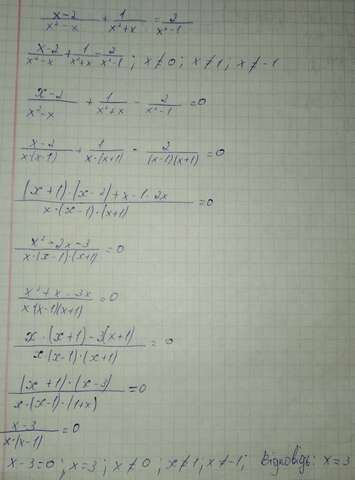 (x-2)/(x²-x) + 1/(x²+x) = 2/(x²-1)
(x-2)/(x²-x) + 1/(x²+x) = 2/(x²-1) ; x≠0 ; x≠1, x≠-1
(x-2)/(x²-x) + 1/(x²+x) - 2/(x²-1) = 0
(x-2)/(x·(x-1)) + 1/(x·(x+1)) - 2/((x-1)(x+1)) = 0
((x+1)·(x-2)+x-1-2x)/(x·(x-1)·(x+1)) = 0
(x²-2x-3)/(x·(x-1)·(x+1)) = 0
(x²+x-3x)/(x·(x-1)(x+1)) = 0
(x·(x+1)-3(x+1))/(x·(x-1)·(x+1)) = 0
((x+1)·(x-3))/(x·(x-1)·(1+x)) = 0
(x-3)/(x·(x-1)) = 0
x-3=0 ; x=3 ; x≠0 ; x≠1, x≠-1 ; Відповідь: x=3